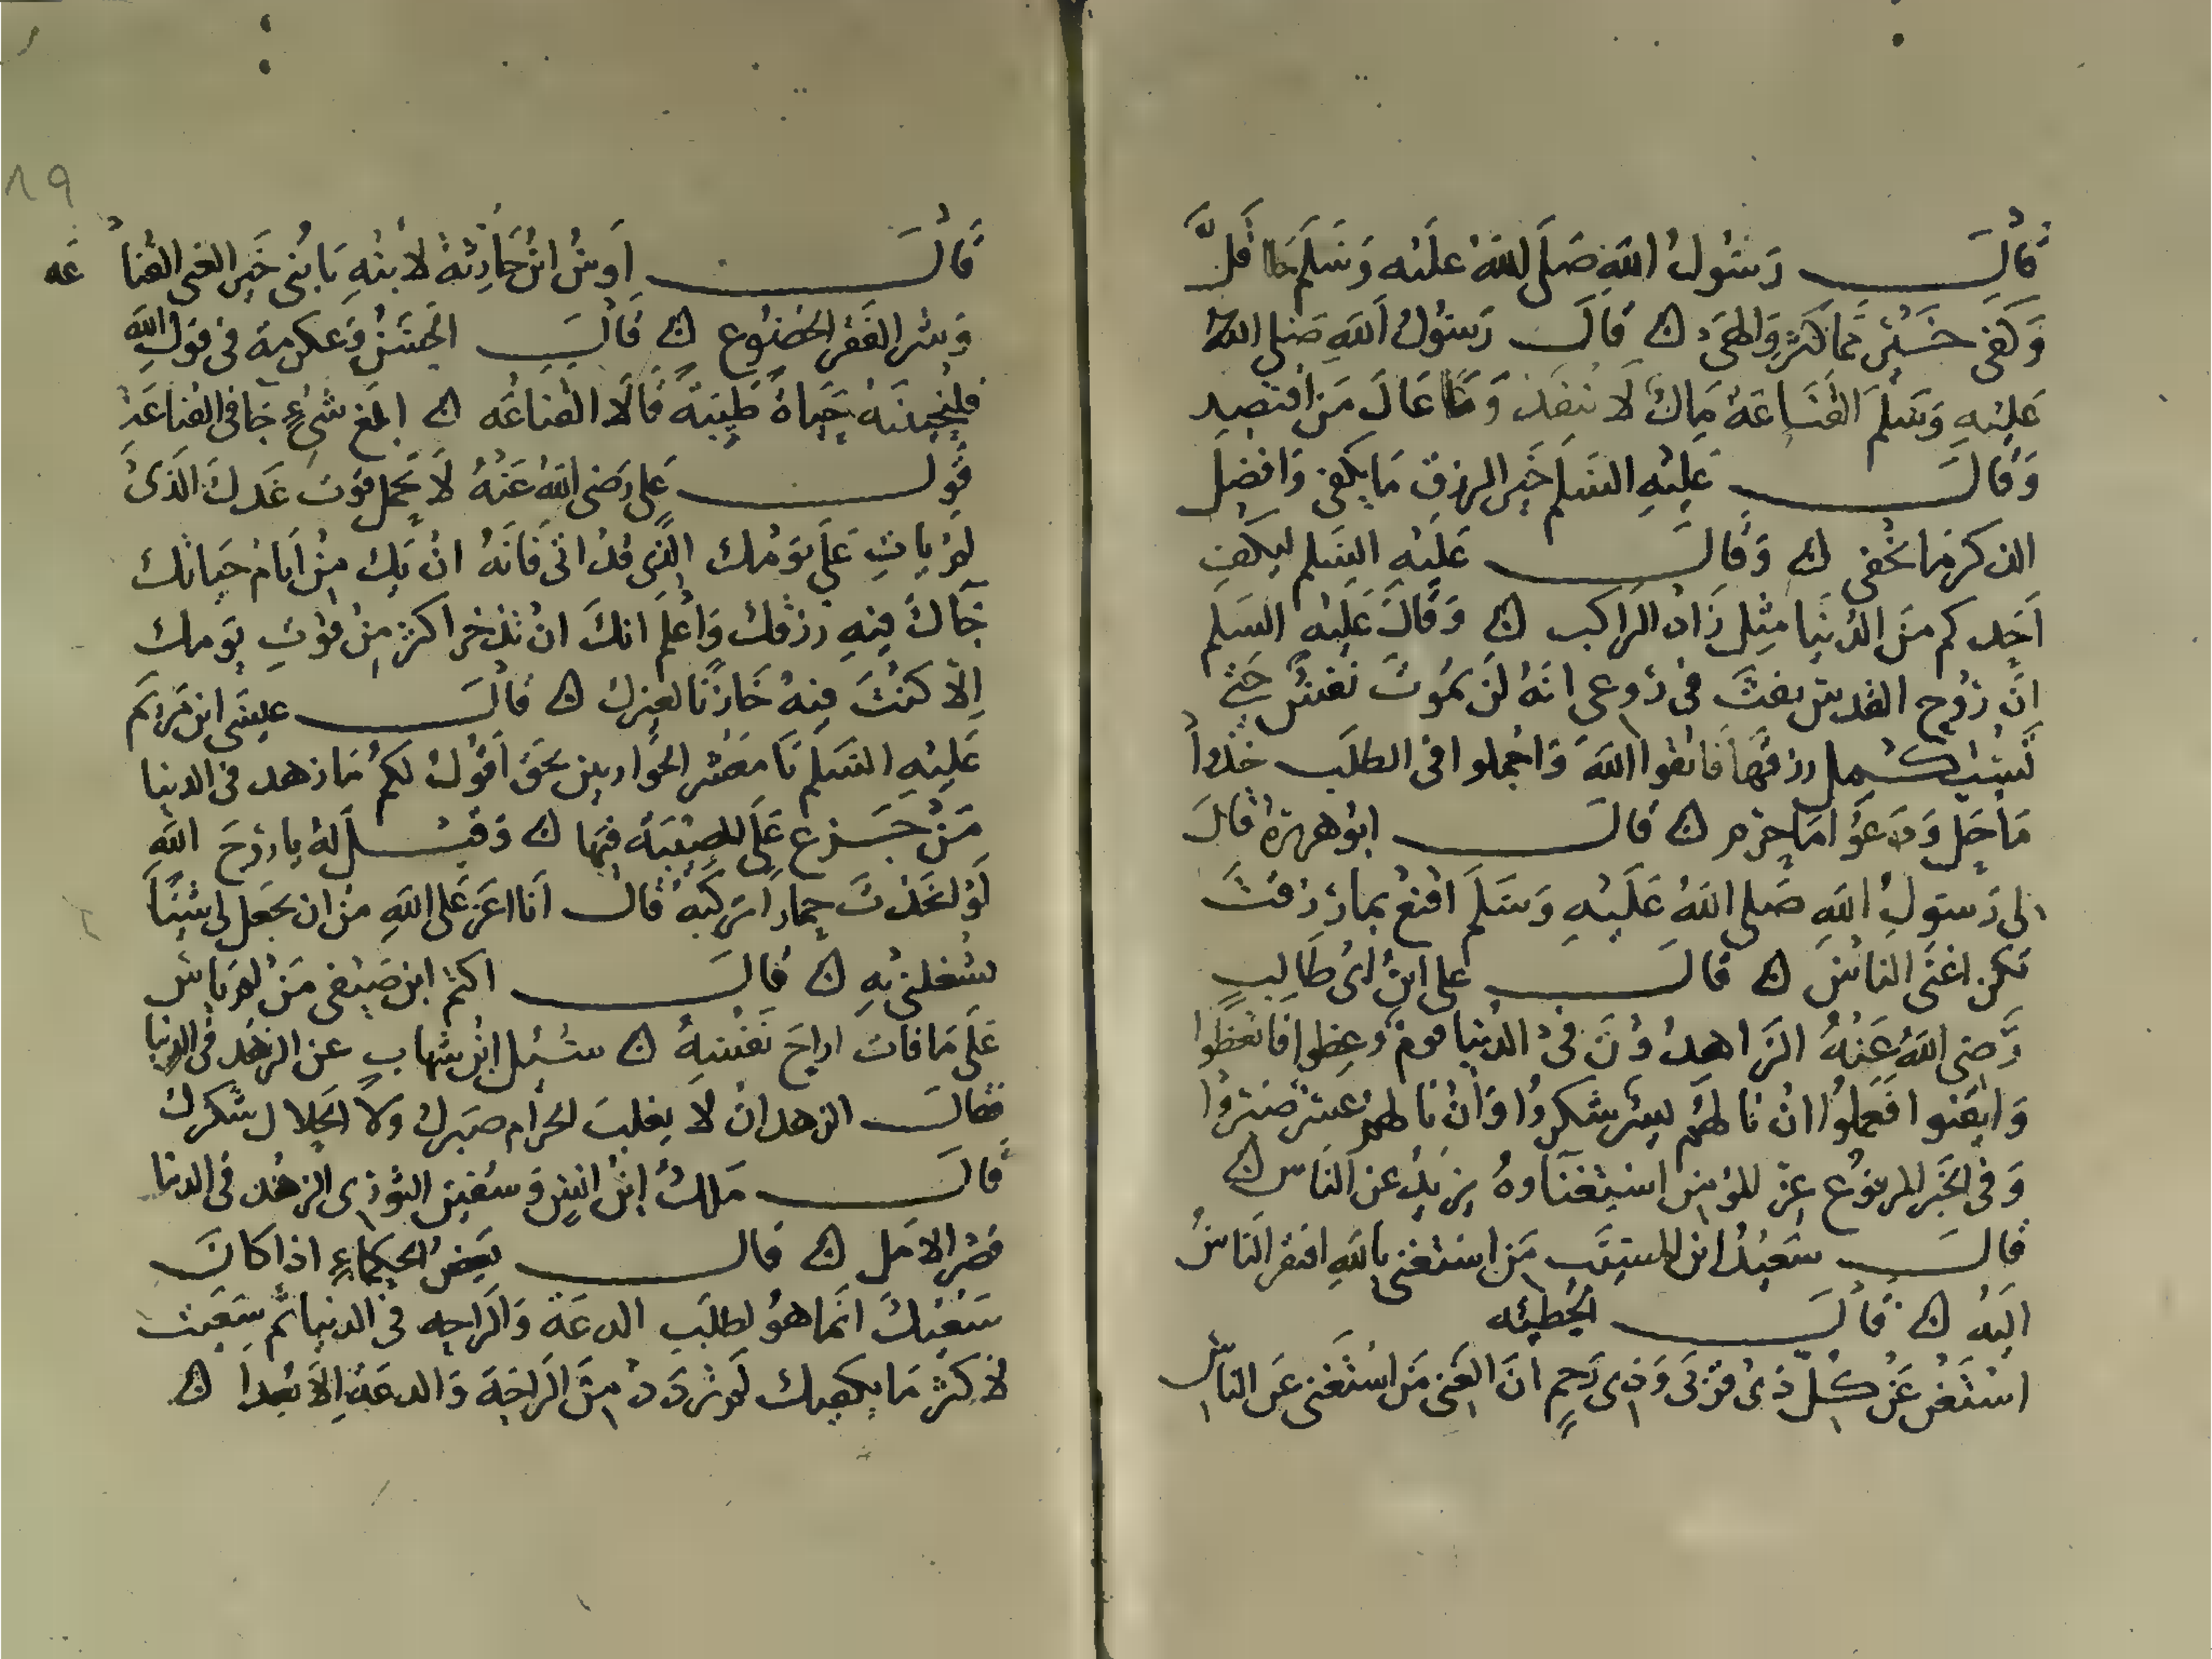 قَالَ رَسُولُ اللَّهِ صَلَى اللَّهُ عَلَيْه وَسَلَم مَا قَلَّ
وَكَفَى خَيْر مِمَا كَثُرَ وَالهَى ن قَالَ رَسُولُ اللَّهِ صَلى اللَّهُ
عَلَيْهِ وَسَلَم القَنَاعَة مَالٌ لَا يَنفَذ وَمَا عَالَ مَن اقتَصِد
وَقَالَ عَلَيْهِ السَلم خَير الرزق مَا يكفى وَافضَل
الذكر مَا يخفى ن وَقَالَ عَلَيْهِ السَلم ليَكفِ
اَحَدكم منَ الدُنيَا مثِل زَاد الرَاكب ن وَقَالَ عَلَيْه السَلم
انَ رُوح القدس نفثَ فى رُوعى انهُ لَن تمُوتَ نَفسٌ حَتى
تَستكمِل رزقَهَا فَاتقوا اللهَ وَاجملوا فى الطلَب خُذُوا
مَا حَل وَدَعُوا مَا حرم ن قَالَ ابو هريرة قَالَ
لى رَسولُ اللَّهِ صَلى اللهُ عَلَيْهِ وَسَلَم اقنع بما رُزقتَ
تكن اغنَى النَاس ن قَالَ على ابنُ ابى طَالِبٍ
رَضى اللهُ عَنْهُ الزَاهِدُونَ فى الدُنيَا قوم وُعِظوا فَاتعَظُوا
وَايقنوا فَعَملُوا انْ نَالهُم يسْر شكرُوا وَانْ نَالهُم عسْر صَبَرُوا
وَفى الخَبَر المرفوع عِز المؤمِن استِغنَاوهُ بربِهِ عن النَاس ن
قَالَ سَعيدُ ابن المسيَّبِ مَن استَغنى باللهِ افتقر النَاسُ
اليه ن قَالَ الحُطيئه
استَغنِ عَنْ كُلِّ ذى قربَى وَذى رَحِمٍ انَ الغَنى مَن استَغنى عَن النَاسِ
قَالَ اَوسُ ابنُ حَارِثَةَ لاَبنهِ يَا بُنى خَير الغنى القنَا عَه
وَشر الفَقر الخضوع ن قَالَ الحسَنُ وَعكرمة فى قول اللهِ
فلنُحيينَّه حَيَاةً طَيِّبَةً قَالَا القنَاعَه ن ابلغ شئٍ جَا فى القنَاعَة
قَول عَلى رَضى اللهُ عَنْهُ لَا تحمل قوت غَدكَ الَذى
لم يَاتِ عَلَى يَومُك الَّذى قدْ اتى فَانَهُ انْ يَك مِنْ اَيَام حَيَاتك
جَآكَ فيهِ رزقك وَاعْلَم انكَ انْ تدخر اكثر مِنْ قوْتِ يَومك
اِلا كُنتَ فيهُ خَازنًا لغيرك ن قَالَ عيسَى ابن مَريَم
عَلَيْهِ السَلم يَا مَعشر الحوَاريين بحَق اقُولُ لكمُ مَا زهد فى الدنيا
مَنْ جَزع عَلَى المصِيبَة فيهَا ن وَقيل لهُ يا رُوحَ اللهِ
لَو اتخَذتَ حِمارًا تركَبَهُ قَال اَنا اعَز عَلى اللهِ منْ ان يَجعل لى شيئًا
يشغلنى بِهِ ن قَالَ اكثم ابن صَيفى مَنْ لم يَاس
عَلَى مَا فَات اراحَ نَفْسَهُ ن سُئِل ابنُ شهابٍ عن الزهْد فى الدنيا
فقالَ الزهد انْ لا يغلبَ الحرَام صبَرك ولا الحَلال شكرك
قَالَ مَالكُ ابْنُ انسٍ وَسُفين الثَورى الزهْد فى الدنيا
قصْر الامَل ن قَالَ بَعضُ الحكماءِ اذا كَانَ
سَعْيُكَ انَما هوَ لطلَبِ الدعَة وَالرَاحه فى الدنيا ثم سَعَيت
لاكثر مَا يكفِيك لم تزدَدْ مِنَ الرَاحَة وَالدعَةِ الا بُعدًا ن